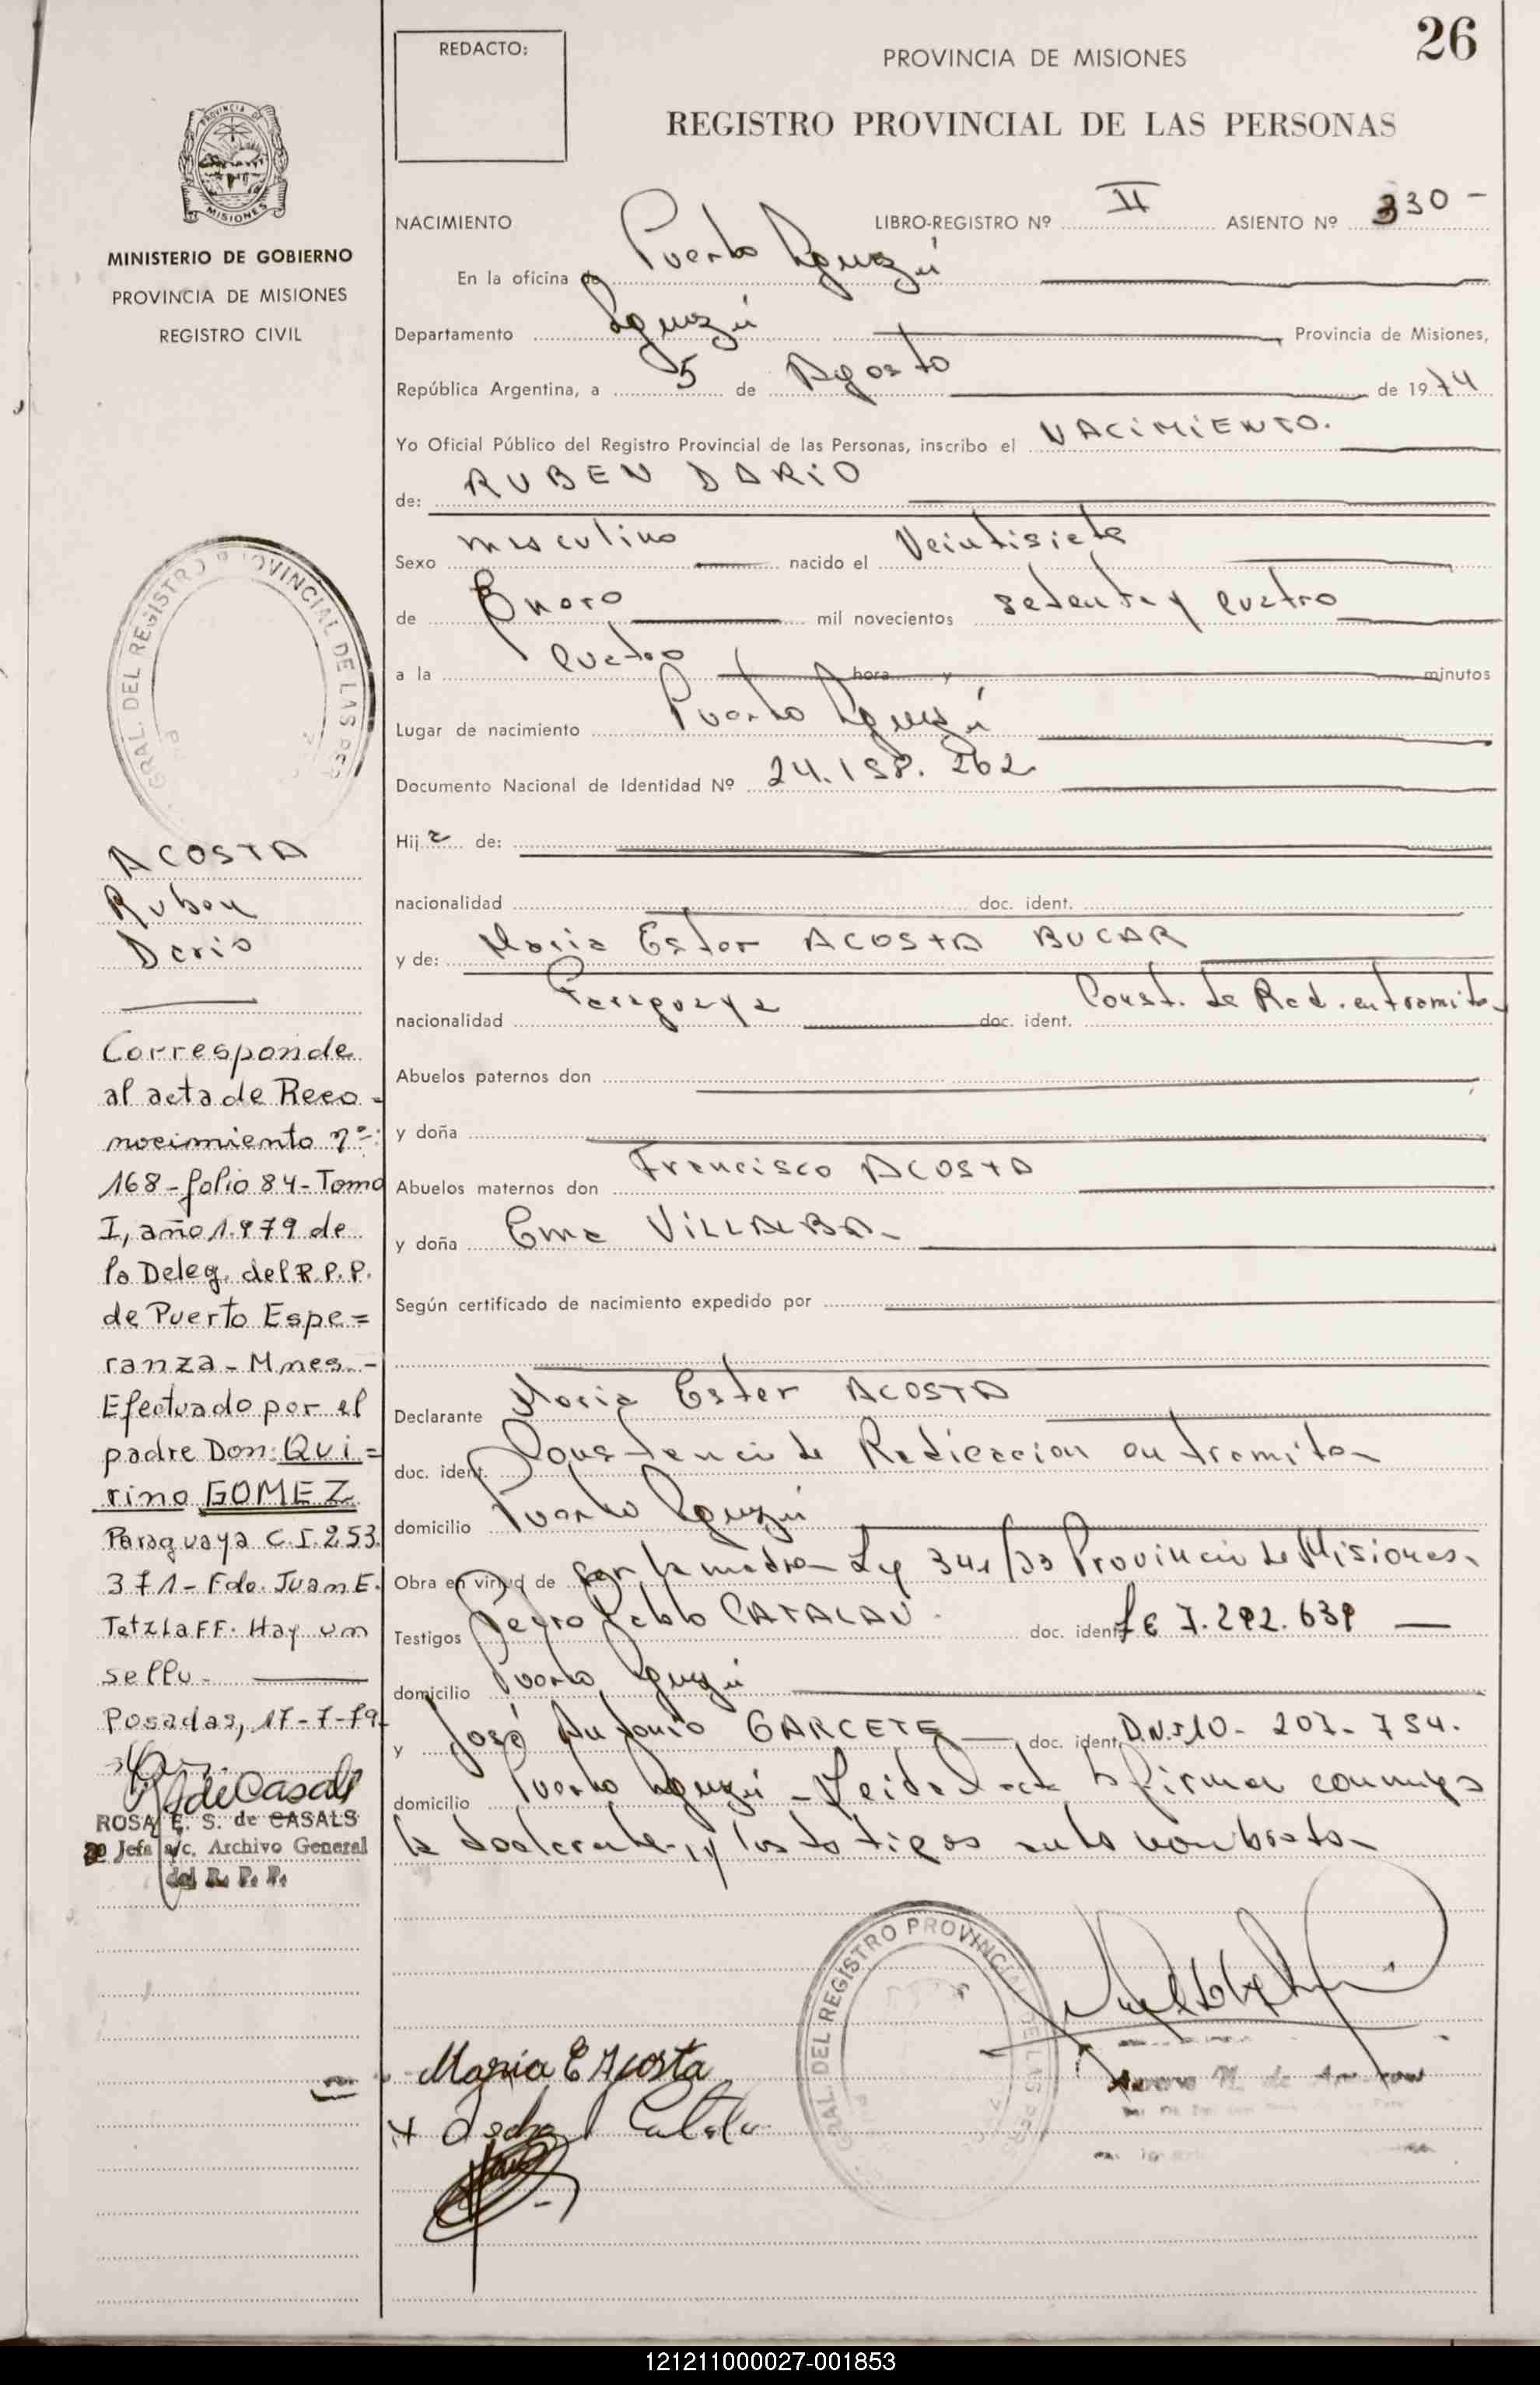 26
REDACTO:
PROVINCIA DE MISIONES
REGISTRO PROVINCIAL DE LAS PERSONAS
PROVINCIA DE
MISIONES
MINISTERIO DE GOBIERNO
PROVINCIA DE MISIONES
REGISTRO CIVIL
NACIMIENTO LIBRO-REGISTRO Nº II ASIENTO Nº 330-
En la oficina de Puerto Iguazú
Departamento Iguazú Provincia de Misiones,
República Argentina, a 5 de Agosto de 1974
Yo Oficial Público del Registro Provincial de las Personas, inscribo el NACIMIENTO.
de: RUBEN DARIO
Sexo masculino nacido el Veintisiete
de Enero mil novecientos setenta y cuatro
a la cuatro hora y minutos
Lugar de nacimiento Puerto Iguazú
Documento Nacional de Identidad Nº 24.158.262
Hij de:
nacionalidad doc. ident.
y de: Maria Ester ACOSTA BUCAR
nacionalidad Paraguaya doc. ident. Const. de Rad. en tramite-
Abuelos paternos don
y doña
Abuelos maternos don Francisco ACOSTA
y doña Ema VILLALBA-
Según certificado de nacimiento expedido por
Declarante Maria Ester ACOSTA
doc. ident. Constancia de Radicacion en tramite-
domicilio Puerto Iguazú
Obra en virtud de ser la madre- Ley Provincia de Misiones-
Testigos Pedro Pablo CATALAN doc. ident. LE 7.292.639
domicilio Puerto Iguazú
y José Antonio GARCETE doc. ident. DNI 10-207-754.
domicilio Puerto Iguazú - Leida el acta la firman conmigo
la declarante- y los testigos ante nombrados-
GRAL. DEL REGISTRO PROVINCIAL DE LAS PER
ACOSTA
Ruben
Dario
Corresponde
al acta de Reco-
nocimiento nº:
168-folio 84-Tomo
I, año 1.979 de
la Deleg. del R.P.P.
de Puerto Espe=
ranza - Mnes.-
Efectuado por el
padre Don: Qui=
rino GOMEZ
Paraguaya C.I. 253.
371- Fdo. Juan E.
TetzlaFF. Hay un
sello-
Posadas, 17-7-79-
ROSA E. S. de CASALS
Jefa a/c. Archivo General
del R. P. P.
GRAL. DEL REGISTRO PROVINCIAL DE LAS PERS
Maria E Acosta
121211000027-001853